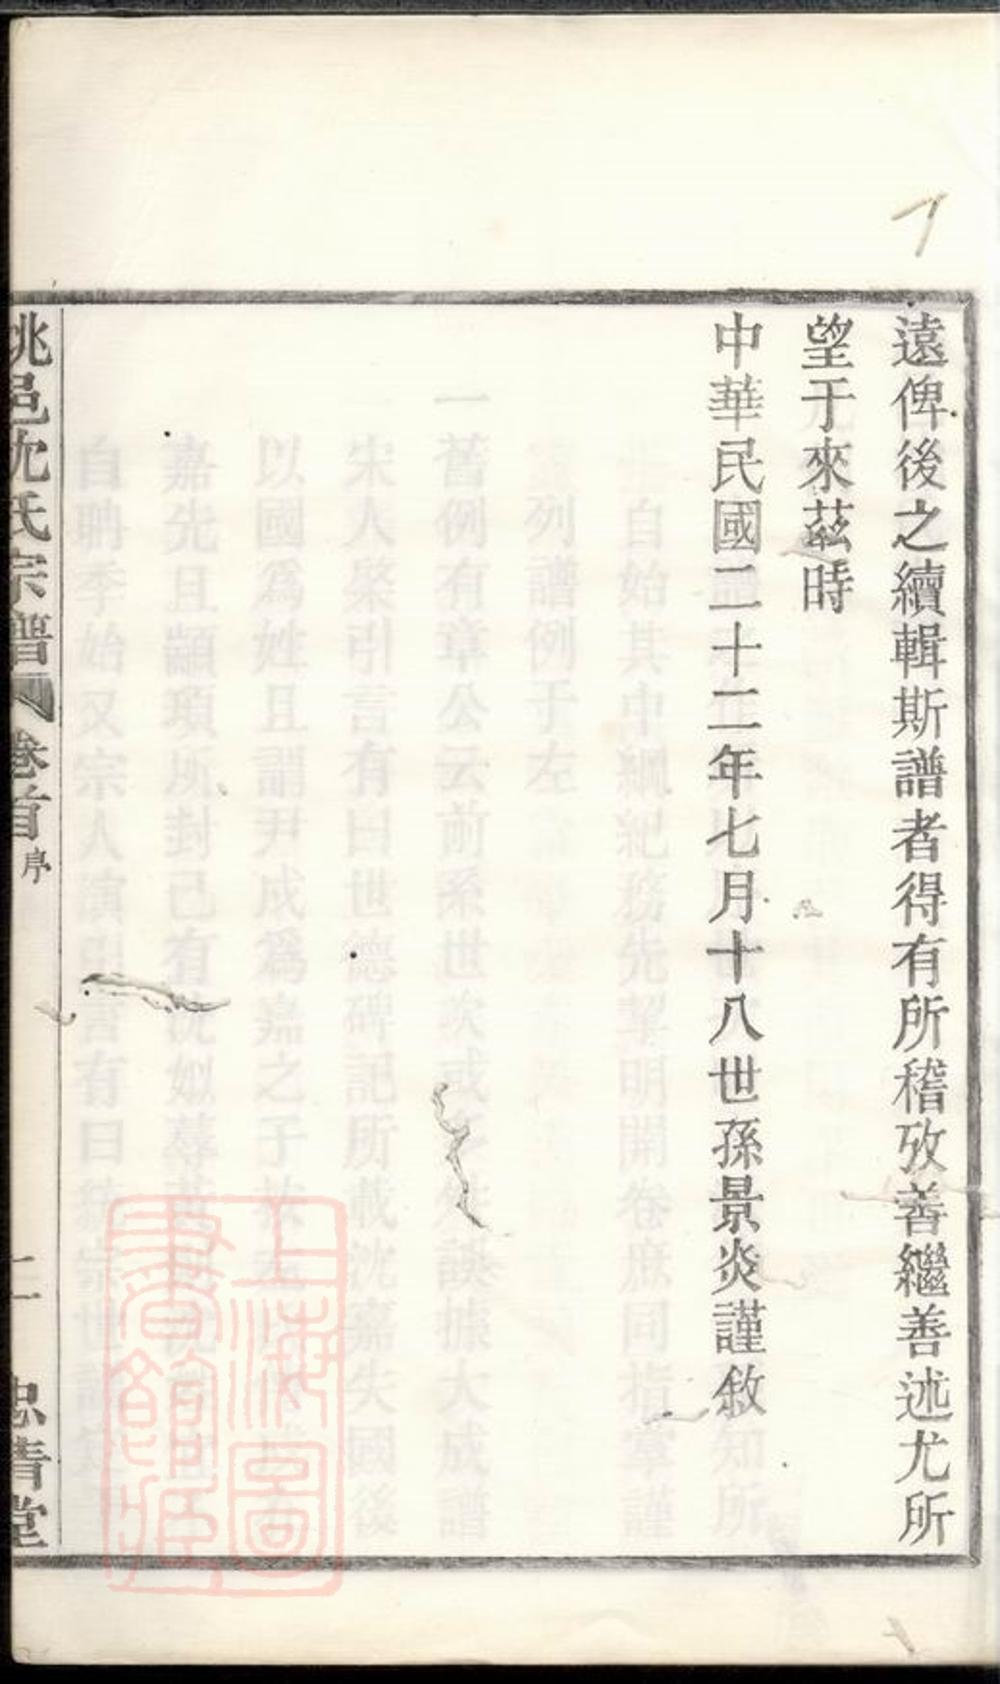 遠俾後之續輯斯譜者得有所稽攷善繼善述尤所
望于來茲時
中華民國二十二年七月十八世孫景炎謹敘
姚邑沈氏宗譜 卷首 序 二 忠清堂
上海圖書館藏